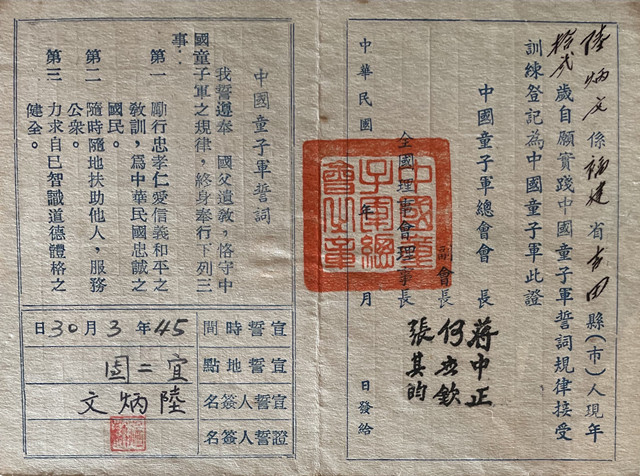 陸炳文係福建省古田縣(市)人現年
拾弍歲自願實踐中國童子軍誓詞規律接受
訓練登記為中國童子軍此證
中國童子軍總會會長 蔣中正
副會長 何應欽
全國理事會理事長 張其昀
中華民國 年 月 日發給
中國童
子軍總
會之章
中國童子軍誓詞
我誓遵奉 國父遺教,恪守中
國童子軍之規律,終身奉行下列三
事:
第一 勵行忠孝仁愛信義和平之
教訓,為中華民國忠誠之
國民。
第二 隨時隨地扶助他人,服務
公衆。
第三 力求自己智識道德體格之
健全。
宣誓時間 45年3月30日
宣誓地點 宜二
宣誓人簽名 陸炳文
證誓人簽名